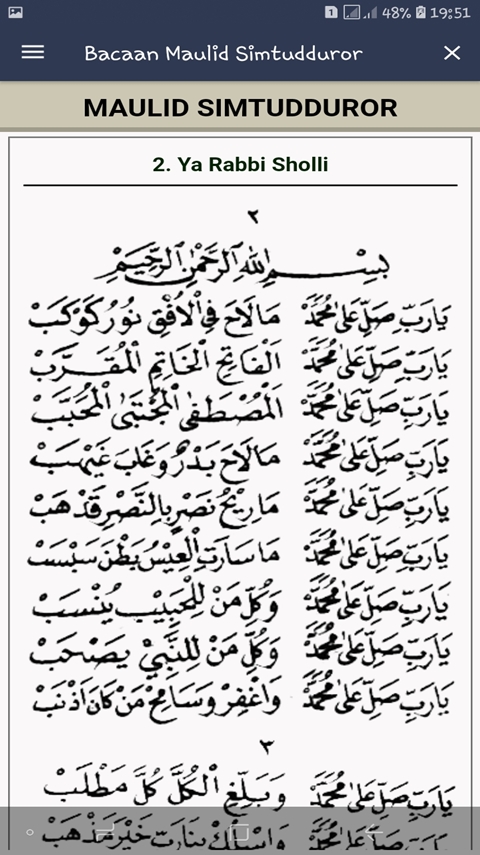 1 48% 19:51
Bacaan Maulid Simtudduror ×
MAULID SIMTUDDUROR
2. Ya Rabbi Sholli
٢
بِسْمِ اللهِ الرَّحْمٰنِ الرَّحِيْمِ
يَارَبِّ صَلِّ عَلٰى مُحَمَّدْ مَالَاحَ فِي الْاُفُقِ نُوْرُ كَوْكَبْ
يَارَبِّ صَلِّ عَلٰى مُحَمَّدْ اَلْفَاتِحِ الْخَاتِمِ الْمُقَرَّبْ
يَارَبِّ صَلِّ عَلٰى مُحَمَّدْ اَلْمُصْطَفَى الْمُجْتَبَى الْمُحَبَّبْ
يَارَبِّ صَلِّ عَلٰى مُحَمَّدْ مَالَاحَ بَدْرٌ وَغَابَ غَيْهَبْ
يَارَبِّ صَلِّ عَلٰى مُحَمَّدْ مَارِيْحُ نَصْرٍ بِالنَّصْرِ قَدْهَبْ
يَارَبِّ صَلِّ عَلٰى مُحَمَّدْ مَاسَارَتِ الْعِيْسُ بَطْنَ سَبْسَبْ
يَارَبِّ صَلِّ عَلٰى مُحَمَّدْ وَكُلِّ مَنْ لِلْحَبِيْبِ يُنْسَبْ
يَارَبِّ صَلِّ عَلٰى مُحَمَّدْ وَكُلِّ مَنْ لِلنَّبِيْ يَصْحَبْ
يَارَبِّ صَلِّ عَلٰى مُحَمَّدْ وَاغْفِرْ وَسَامِحْ مَنْ كَانَ اَذْنَبْ
٣
يَارَبِّ صَلِّ عَلٰى مُحَمَّدْ وَبَلِّغِ الْكُلَّ كُلَّ مَطْلَبْ
يَارَبِّ صَلِّ عَلٰى مُحَمَّدْ وَاسْلُكْ بِنَارَبِّ خَيْرَ مَذْهَبْ